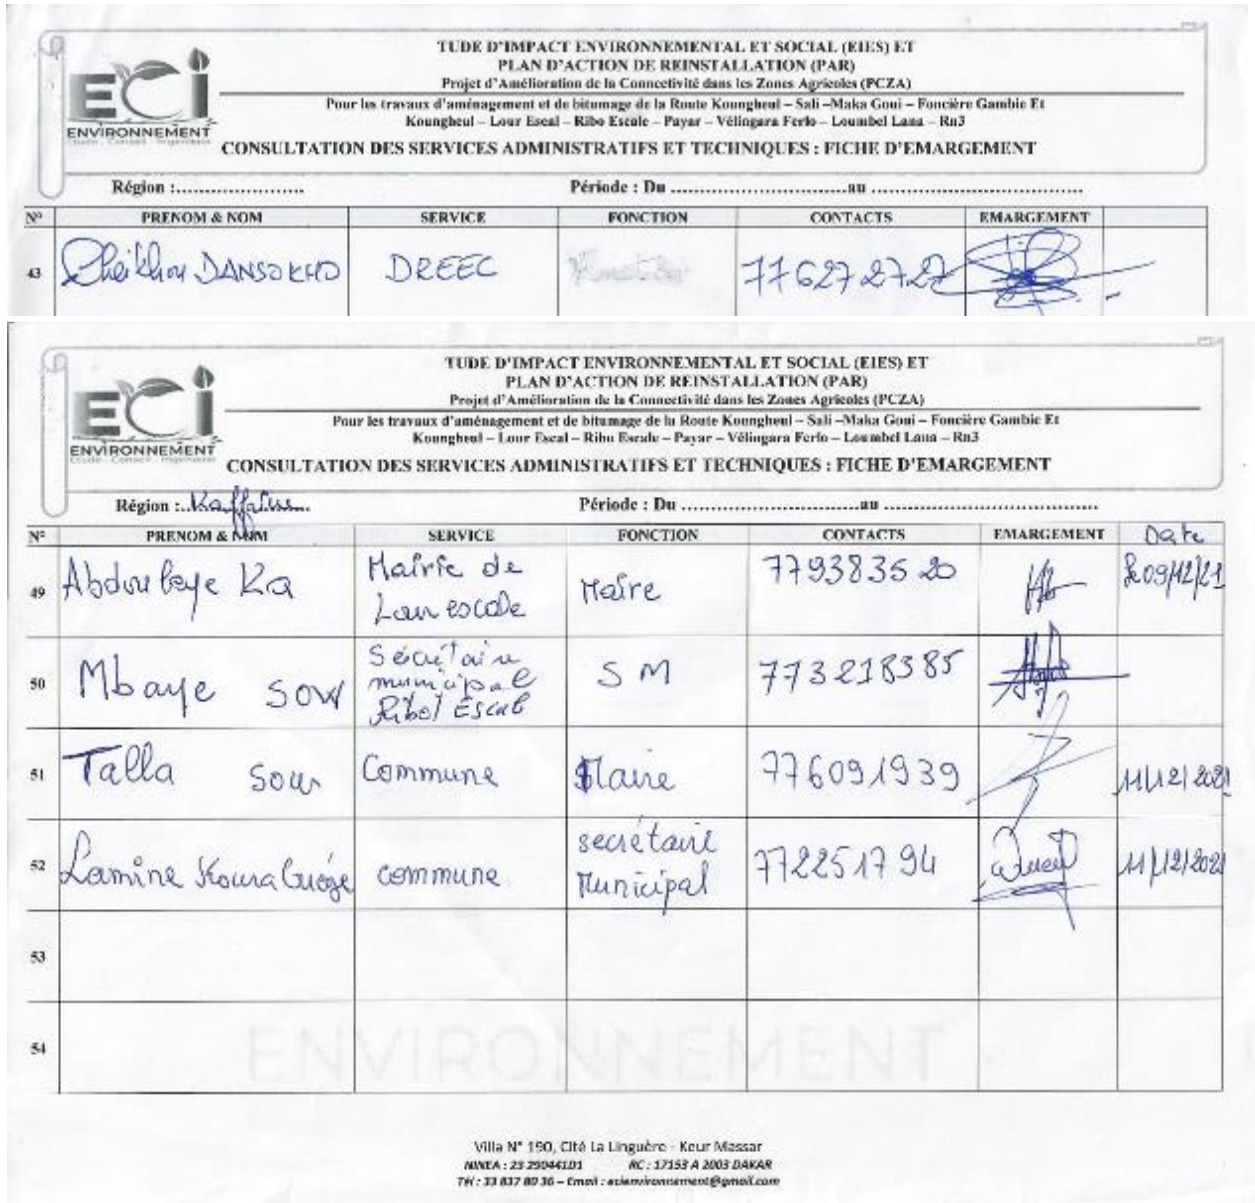 ECI
ENVIRONNEMENT
Etude - Conseil - Ingénierie
TUDE D'IMPACT ENVIRONNEMENTAL ET SOCIAL (EIES) ET
PLAN D'ACTION DE REINSTALLATION (PAR)
Projet d'Amélioration de la Connectivité dans les Zones Agricoles (PCZA)
Pour les travaux d'aménagement et de bitumage de la Route Koungheul – Sali –Maka Goui – Foncière Gambie Et
Koungheul – Lour Escal – Ribo Escale – Payar – Vélingara Ferlo – Loumbel Lana – Rn3
CONSULTATION DES SERVICES ADMINISTRATIFS ET TECHNIQUES : FICHE D'EMARGEMENT
Région :..................... Période : Du .............................au ...................................
N° PRENOM & NOM SERVICE FONCTION CONTACTS EMARGEMENT
43 Cheikhou DANSOKHO DREEC 776272727
ECI
ENVIRONNEMENT
Etude - Conseil - Ingénierie
TUDE D'IMPACT ENVIRONNEMENTAL ET SOCIAL (EIES) ET
PLAN D'ACTION DE REINSTALLATION (PAR)
Projet d'Amélioration de la Connectivité dans les Zones Agricoles (PCZA)
Pour les travaux d'aménagement et de bitumage de la Route Koungheul – Sali –Maka Goui – Foncière Gambie Et
Koungheul – Lour Escal – Ribo Escale – Payar – Vélingara Ferlo – Loumbel Lana – Rn3
CONSULTATION DES SERVICES ADMINISTRATIFS ET TECHNIQUES : FICHE D'EMARGEMENT
Région :..Kaffrine... Période : Du .............................au ...................................
N° PRENOM & NOM SERVICE FONCTION CONTACTS EMARGEMENT Date
49 Abdoulaye Ka Mairie de Lour escale Maire 779383520 le 09/12/21
50 Mbaye SOW Sécrétaire municipal Ribot Escale S M 773218385
51 Talla Sow Commune Maire 776091939 11/12/2021
52 Lamine commune secrétaire Municipal 772251794 11/12/2021
53
54
ENVIRONNEMENT
Villa N° 190, Cité La Linguère - Keur Massar
NINEA : 23 290441D1 RC : 17153 A 2003 DAKAR
Tél : 33 837 80 36 – Email : ecienvironnement@gmail.com